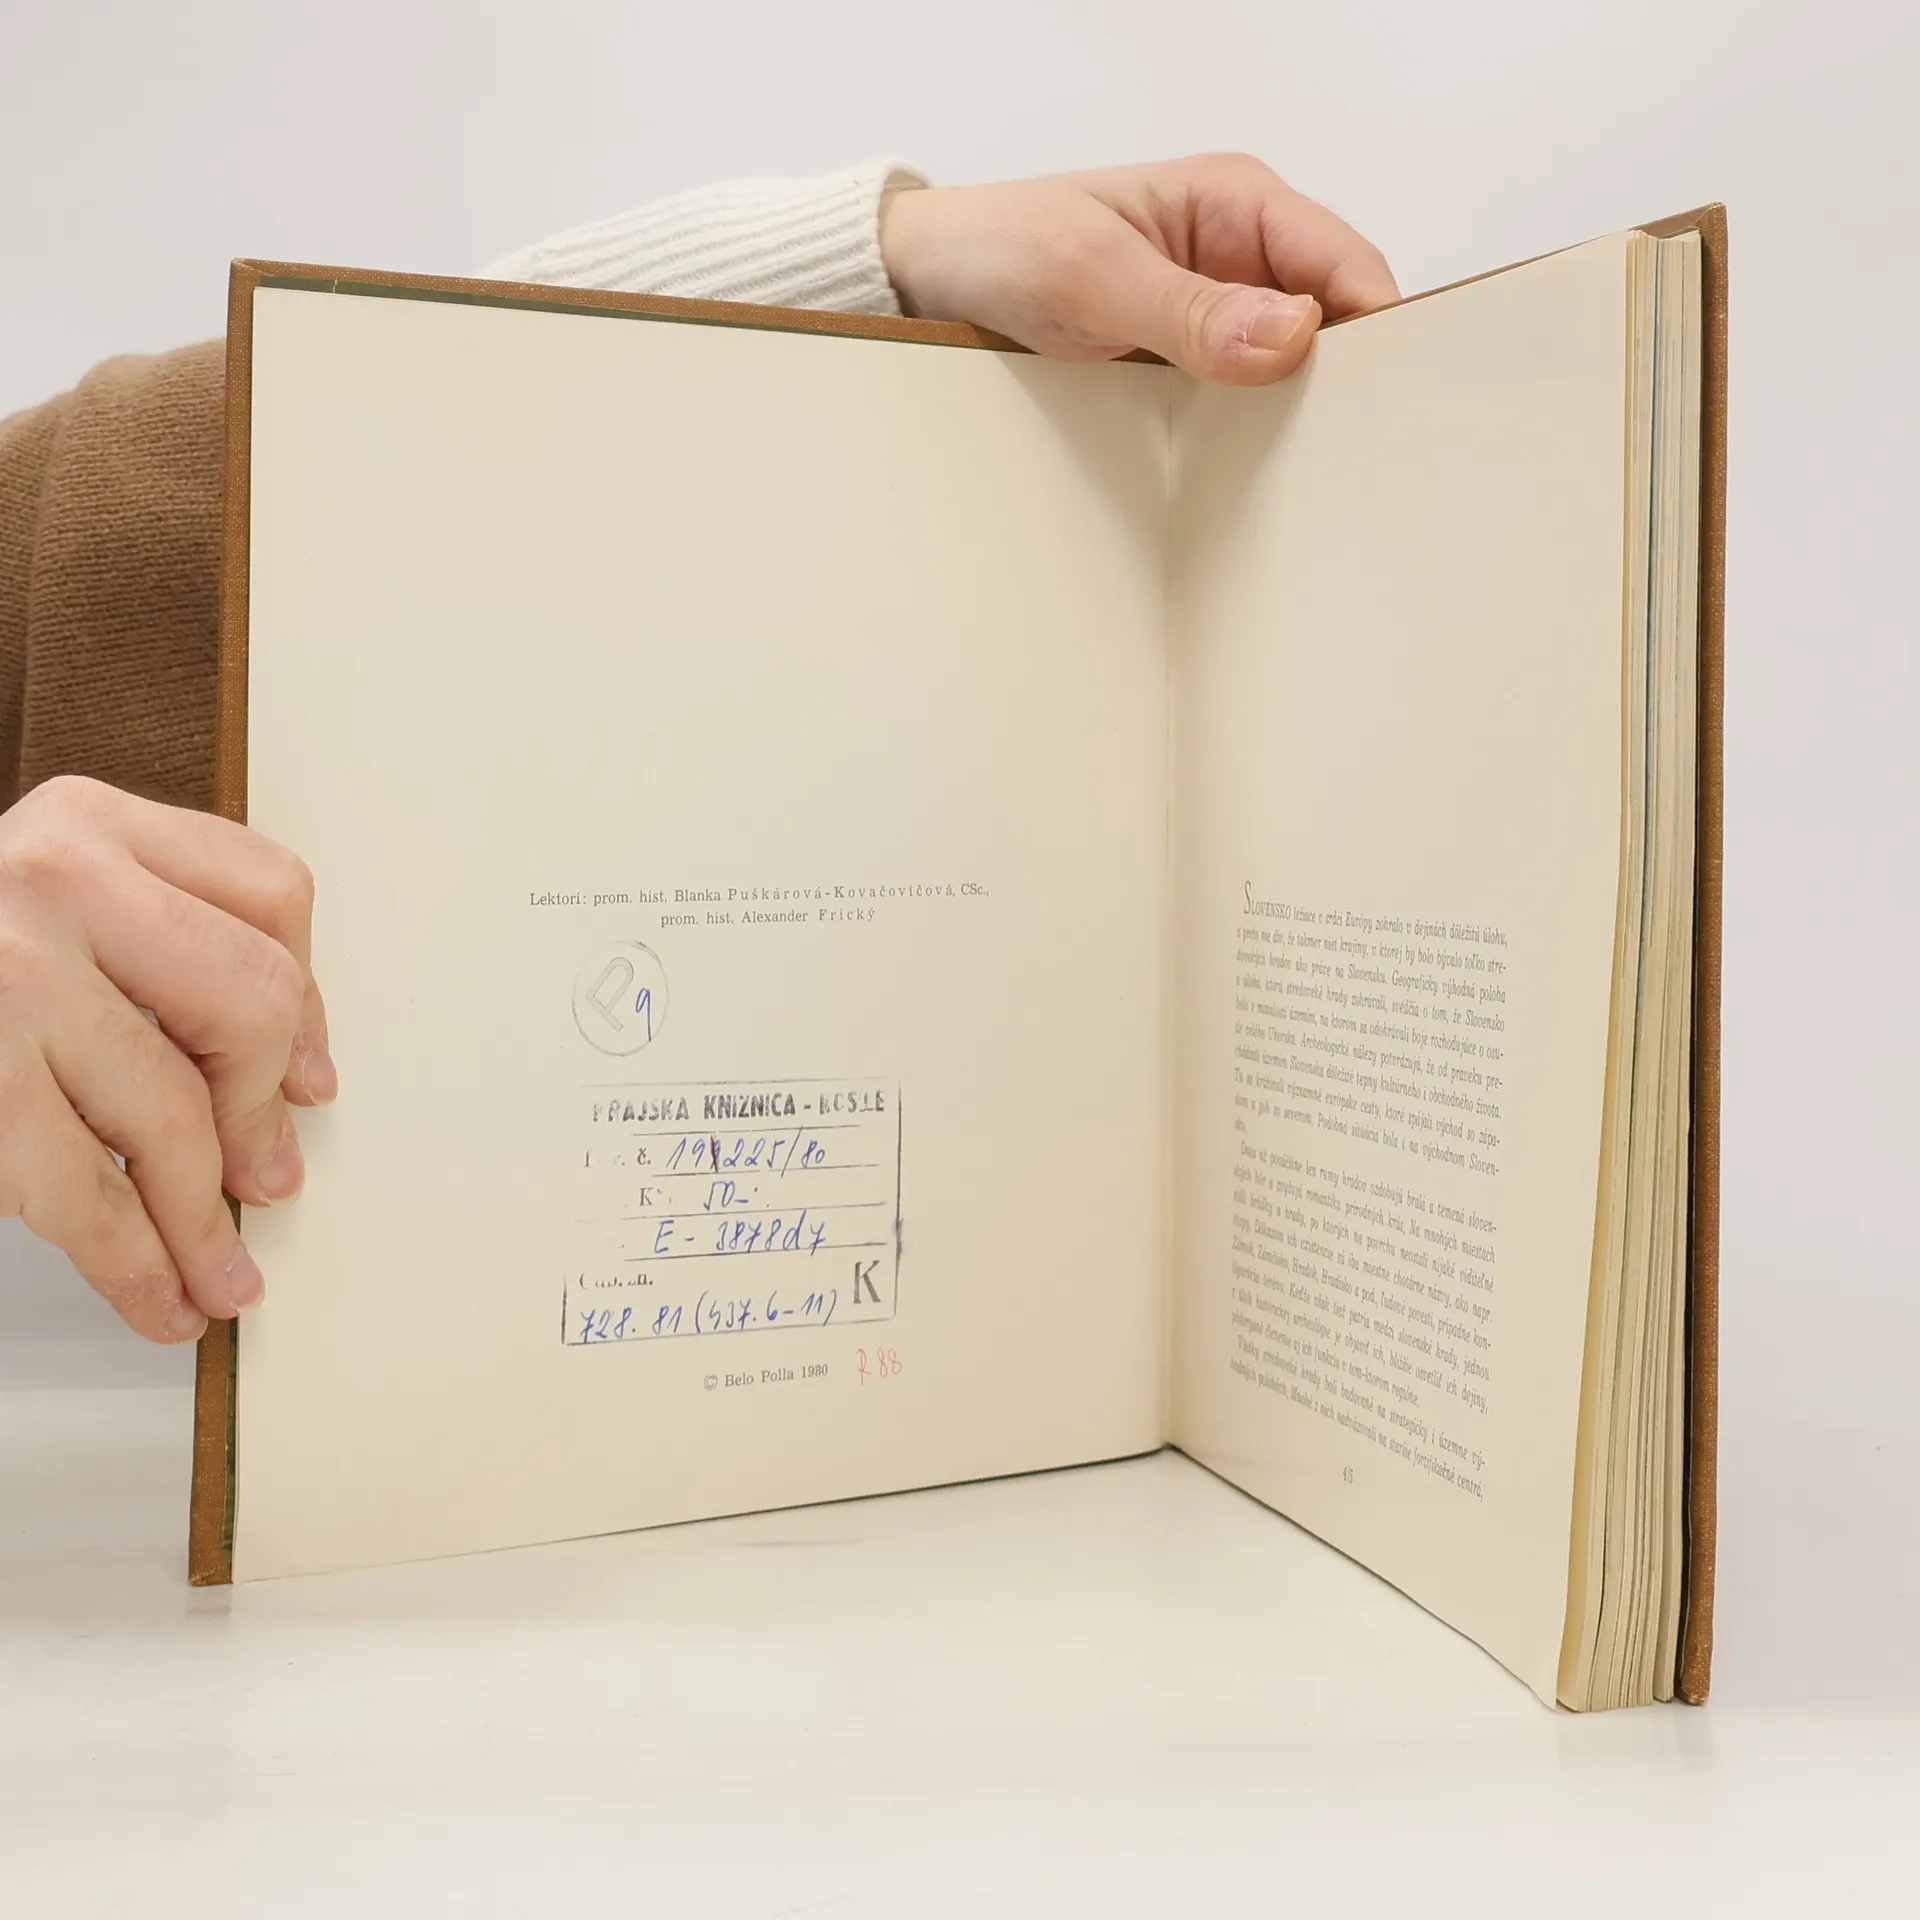 Lektori: prom. hist. Blanka Puškárová-Kovačovičová, CSc.,
prom. hist. Alexander Frický
P 9
KRAJSKA KNIZNICA - KOSICE
č. 191225/80
50-
E - 3878d7
K
728. 81 (437.6-11)
© Belo Polla 1980
R 88
SLOVENSKO ležiace v srdci Európy zohralo v dejinách dôležitú úlohu,
a preto nie div, že takmer niet krajiny, v ktorej by bolo bývalo toľko stre-
dovekých hradov ako práve na Slovensku. Geograficky výhodná poloha
a úloha, ktorú stredoveké hrady zohrávali, svedčia o tom, že Slovensko
bolo v minulosti územím, na ktorom sa odohrávali boje rozhodujúce o osu-
de celého Uhorska. Archeologické nálezy potvrdzujú, že od praveku pre-
chádzali územím Slovenska dôležité tepny kultúrneho i obchodného života.
Tu sa križovali významné európske cesty, ktoré spájali východ so zápa-
dom a juh so severom. Podobná situácia bola i na východnom Sloven-
sku.
Dnes už ponáčšine len rumy hradov ozdobujú bralá a temená sloven-
ských hôr a zvyšujú romantiku prírodných krás. Na mnohých miestach
stáli hrádky a hrady, po ktorých na povrchu neostali nijaké viditeľné
stopy. Dôkazom ich existencie sú iba miestne chotárne názvy, ako napr.
Zámok, Zámčisko, Hrádok, Hradisko a pod., ľudové povesti, prípadne kon-
figurácia terénu. Keďže však tiež patria medzi slovenské hrady, jednou
z úloh historickej archeológie je objaviť ich, bližšie osvetliť ich dejiny,
pôdorysné členenie aj ich funkciu v tom-ktorom regióne.
Všetky stredoveké hrady boli budované na strategicky i územne vý-
hodných polohách. Mnohé z nich nadväzovali na staršie fortifikačné centrá,
4/5